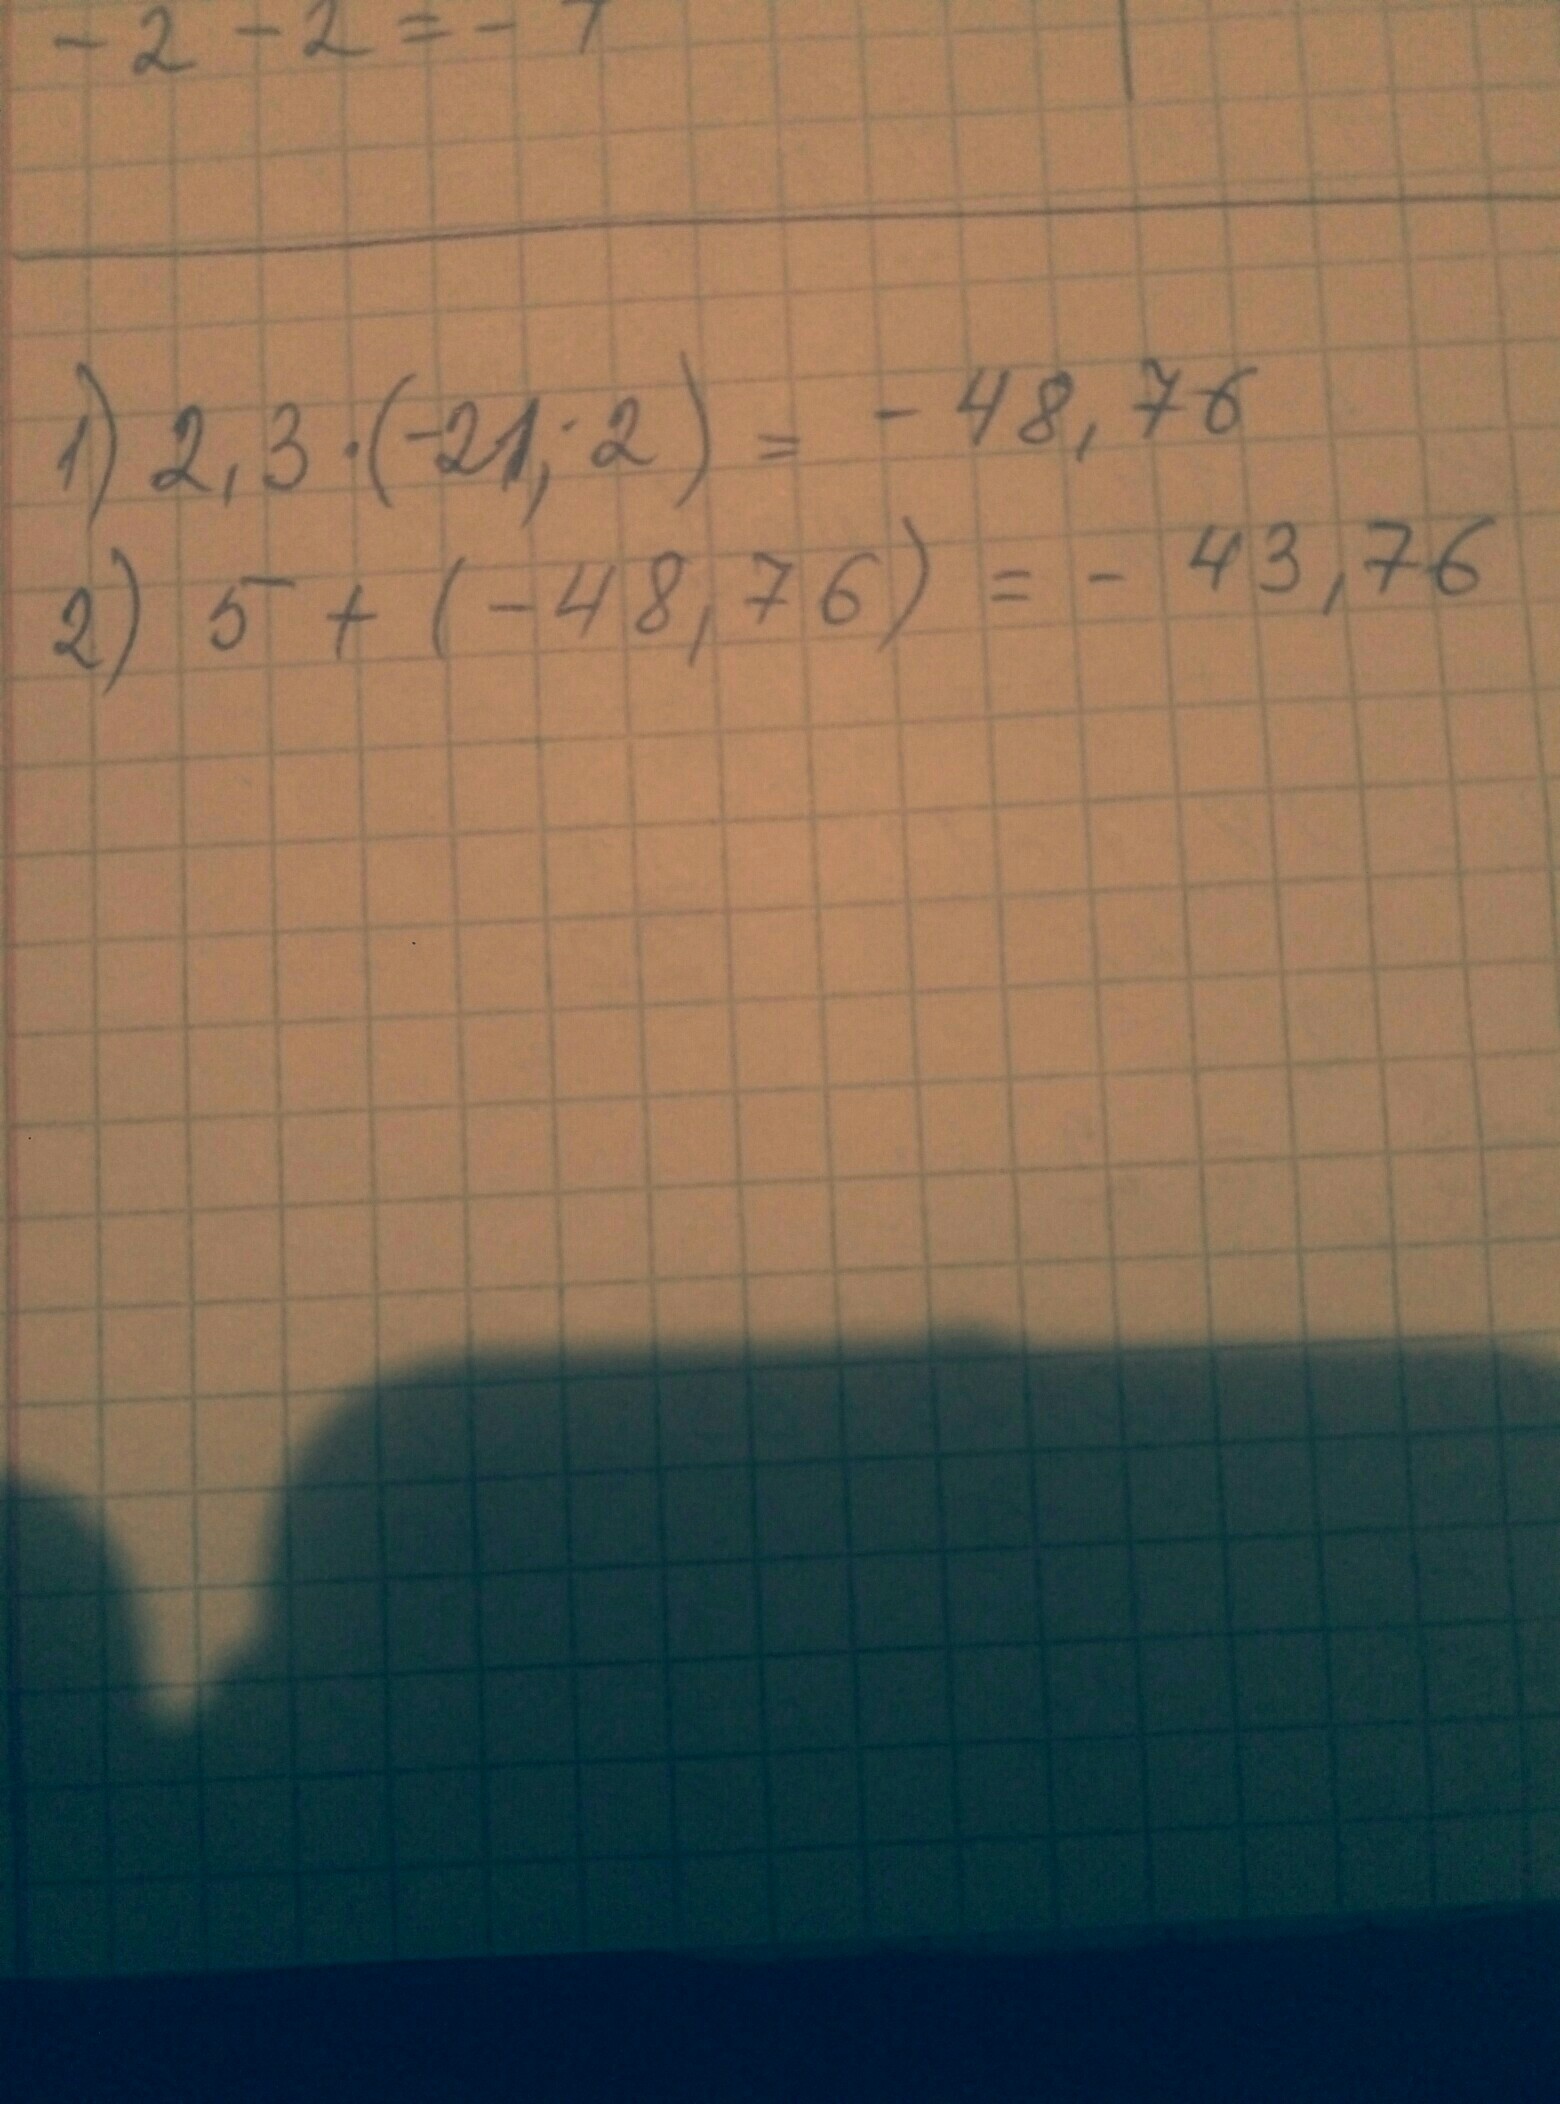 -2 -2 = -
1) 2,3·(-21,2) = -48,76
2) 5 + (-48,76) = -43,76